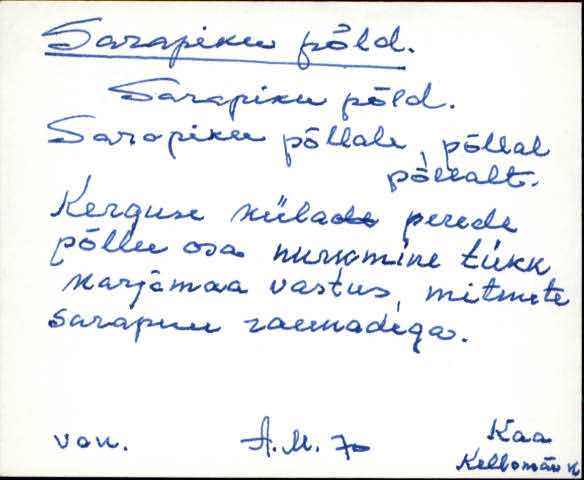 Sarapiku põld.
Sarapiku põld.
Sarapiku põllale, põllal
põllalt.
Kerguse külade perede
põllu osa nurkmine tükk
karjamaa vastus, mitmete
sarapuu raunadega.
von. A.M. 70 Kaa
Kellamäe k